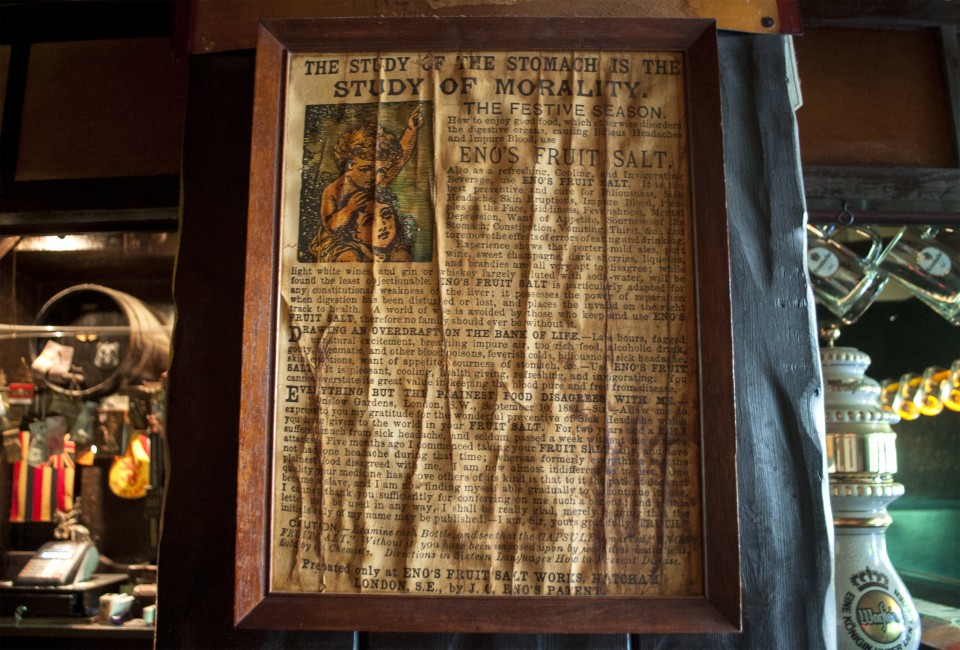 THE STUDY OF THE STOMACH IS THE
STUDY OF MORALITY.
THE FESTIVE SEASON.
How to enjoy good food, which otherwise disorders
the digestive organs, causing Bilious Headaches
and Impure Blood, use
ENO'S FRUIT SALT.
Also as a refreshing, Cooling, and Invigorating
Beverage, use ENO'S FRUIT SALT. It is the
best preventive and cure for Biliousness, Sick
Headache, Skin Eruptions, Impure Blood, Pim-
ples on the Face, Giddiness, Feverishness, Mental
Depression, Want of Appetite, Sourness of the
Stomach, Constipation, Vomiting, Thirst, &c., and
to remove the effects of errors of eating and drinking.
Experience shows that porter, mild ales, port
wine, sweet champagne, dark sherries, liqueurs,
and brandies are all very apt to disagree; while
light white wines, and gin or whiskey largely diluted with soda-water, will be
found the least objectionable. ENO'S FRUIT SALT is particularly adapted for
any constitutional weakness of the liver; it possesses the power of reparation
when digestion has been disturbed or lost, and places the invalid on the right
track to health. A world of woe is avoided by those who keep and use ENO'S
FRUIT SALT, therefore no family should ever be without it.
DRAWING AN OVERDRAFT ON THE BANK OF LIFE.—Late hours, fagged,
unnatural excitement, breathing impure air, too rich food, alcoholic drink,
gouty, rheumatic, and other blood poisons, feverish colds, biliousness, sick headache,
skin eruptions, want of appetite, sourness of stomach, &c.—Use ENO'S FRUIT
SALT. It is pleasant, cooling, health giving, refreshing, and invigorating. You
cannot overstate its great value in keeping the blood pure and free from disease.
EVERYTHING BUT THE PLAINEST FOOD DISAGREES WITH ME.—
Onslow Gardens, London, S.W., September 10, 1881.—Sir,—Allow me to
express to you my gratitude for the wonderful preventive of Sick Headache which
you have given to the world in your FRUIT SALT. For two years and a
suffered much from sick headache, and seldom passed a week without one or
attacks. Five months ago I commenced taking your FRUIT SALT, and have
not had one headache during that time; whereas formerly everything but the
plainest food disagreed with me. I am now almost indifferent to
quality your medicine has above others of its kind is that to it the patient does not
become a slave, and I am now finding myself able gradually to discontinue its use.
I cannot thank you sufficiently for conferring on me such a
letter can be used in any way, I shall be really glad, merely begging that the
initials only of my name may be published.—I am, Sir, yours gratefully, TRUTH.
CAUTION.—Examine each Bottle, and see that the CAPSULE is marked "ENO'S
FRUIT SALT." Without it you have been imposed upon by
Sold by all Chemists. Directions in Sixteen Languages How to Prevent Disease.
Prepared only at ENO'S FRUIT SALT WORKS, HATCHAM
LONDON, S.E., by J. C. ENO'S PATENT.
EINE KÖNIGIN UNTER DEN
Warsteiner